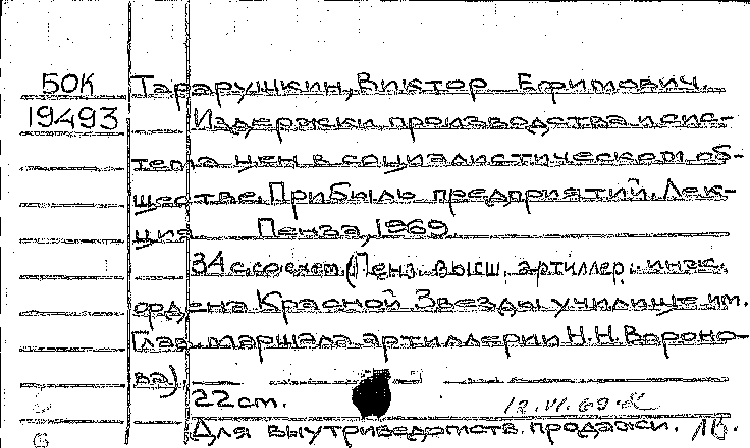 БОК Тарарушкин, Виктор Ефимович.
19493 Издержки производства и сис-
тема цен в социалистическом об-
ществе. Прибыль предприятий. Лек-
ция. Пенза, 1969.
34 с. со схем. (Пенз. высш. артиллер. инж.
ордена Красной Звезды училище им.
Глав. маршала артиллерии Н.Н. Вороно-
ва).
22 см.
12.VI.69
Для внутриведомств. продажи. 1б.